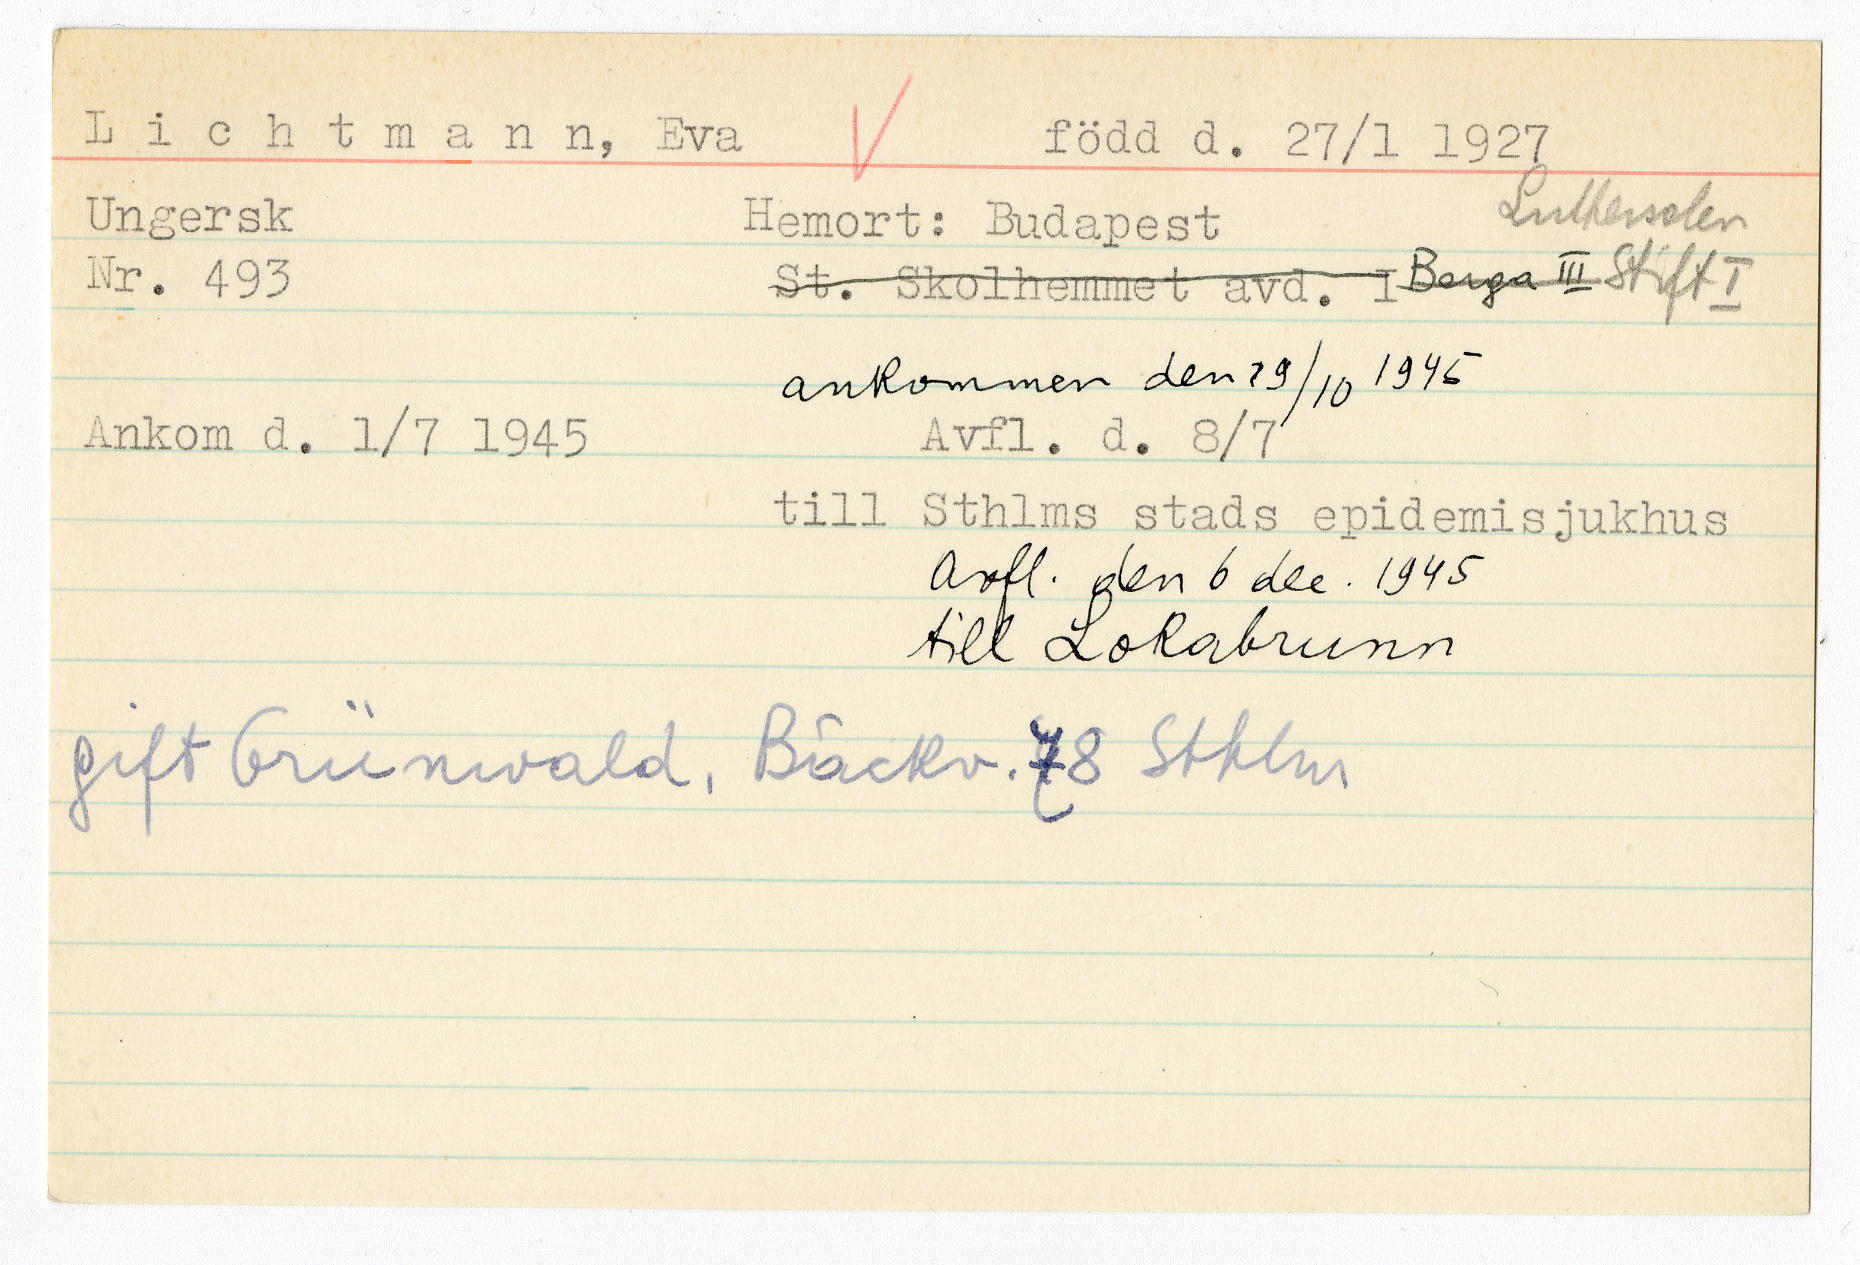 Lichtmann, Eva född d. 27/1 1927
Ungersk Hemort: Budapest Luthersalen
Nr. 493 St. Skolhemmet avd. I Berga III Stift I
ankommen den 29/10 1945
Ankom d. 1/7 1945 Avfl. d. 8/7
till Sthlms stads epidemisjukhus
Avfl. den 6 dec. 1945
till Lokabrunn
gift Grünwald, Bäckv. 78 Sthlm